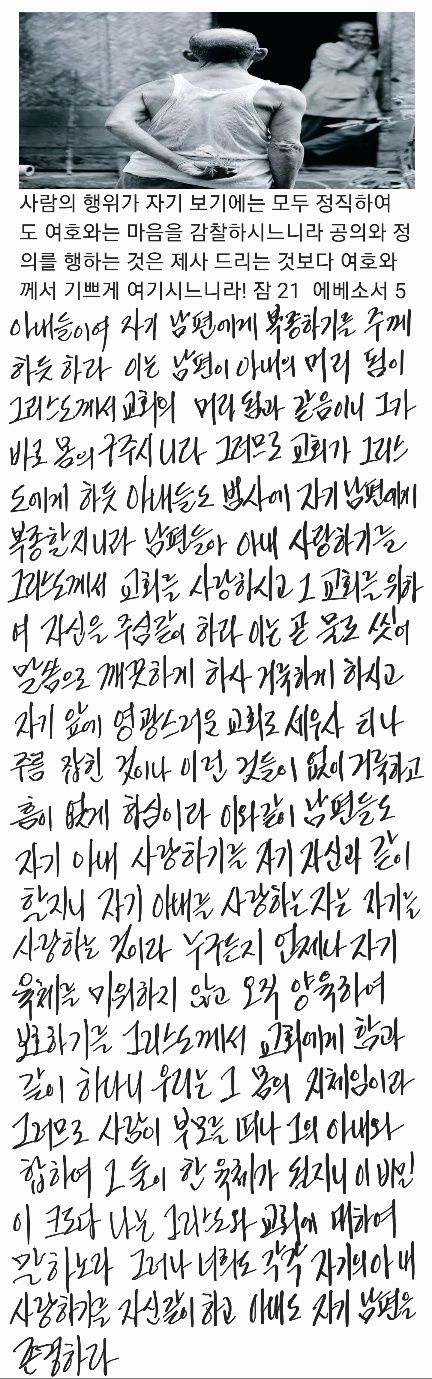 사람의 행위가 자기 보기에는 모두 정직하여
도 여호와는 마음을 감찰하시느니라 공의와 정
의를 행하는 것은 제사 드리는 것보다 여호와
께서 기쁘게 여기시느니라! 잠 21 에베소서 5
아내들이여 자기 남편에게 복종하기를 주께
하듯 하라 이는 남편이 아내의 머리 됨이
그리스도께서 교회의 머리 됨과 같음이니 그가
바로 몸의 구주시니라 그러므로 교회가 그리스
도에게 하듯 아내들도 범사에 자기 남편에게
복종할지니라 남편들아 아내 사랑하기를
그리스도께서 교회를 사랑하시고 그 교회를 위하
여 자신을 주심같이 하라 이는 곧 물로 씻어
말씀으로 깨끗하게 하사 거룩하게 하시고
자기 앞에 영광스러운 교회로 세우사 티나
주름 잡힌 것이나 이런 것들이 없이 거룩하고
흠이 없게 하심이라 이와같이 남편들도
자기 아내 사랑하기를 자기 자신과 같이
할지니 자기 아내를 사랑하는 자는 자기를
사랑하는 것이라 누구든지 언제나 자기
육체를 미워하지 않고 오직 양육하여
보호하기를 그리스도께서 교회에게 함과
같이 하나니 우리는 그 몸의 지체임이라
그러므로 사람이 부모를 떠나 그의 아내와
합하여 그 둘이 한 육체가 될지니 이 비밀
이 크도다 나는 그리스도와 교회에 대하여
말하노라 그러나 너희도 각각 자기의 아내
사랑하기를 자신같이 하고 아내도 자기 남편을
존경하라